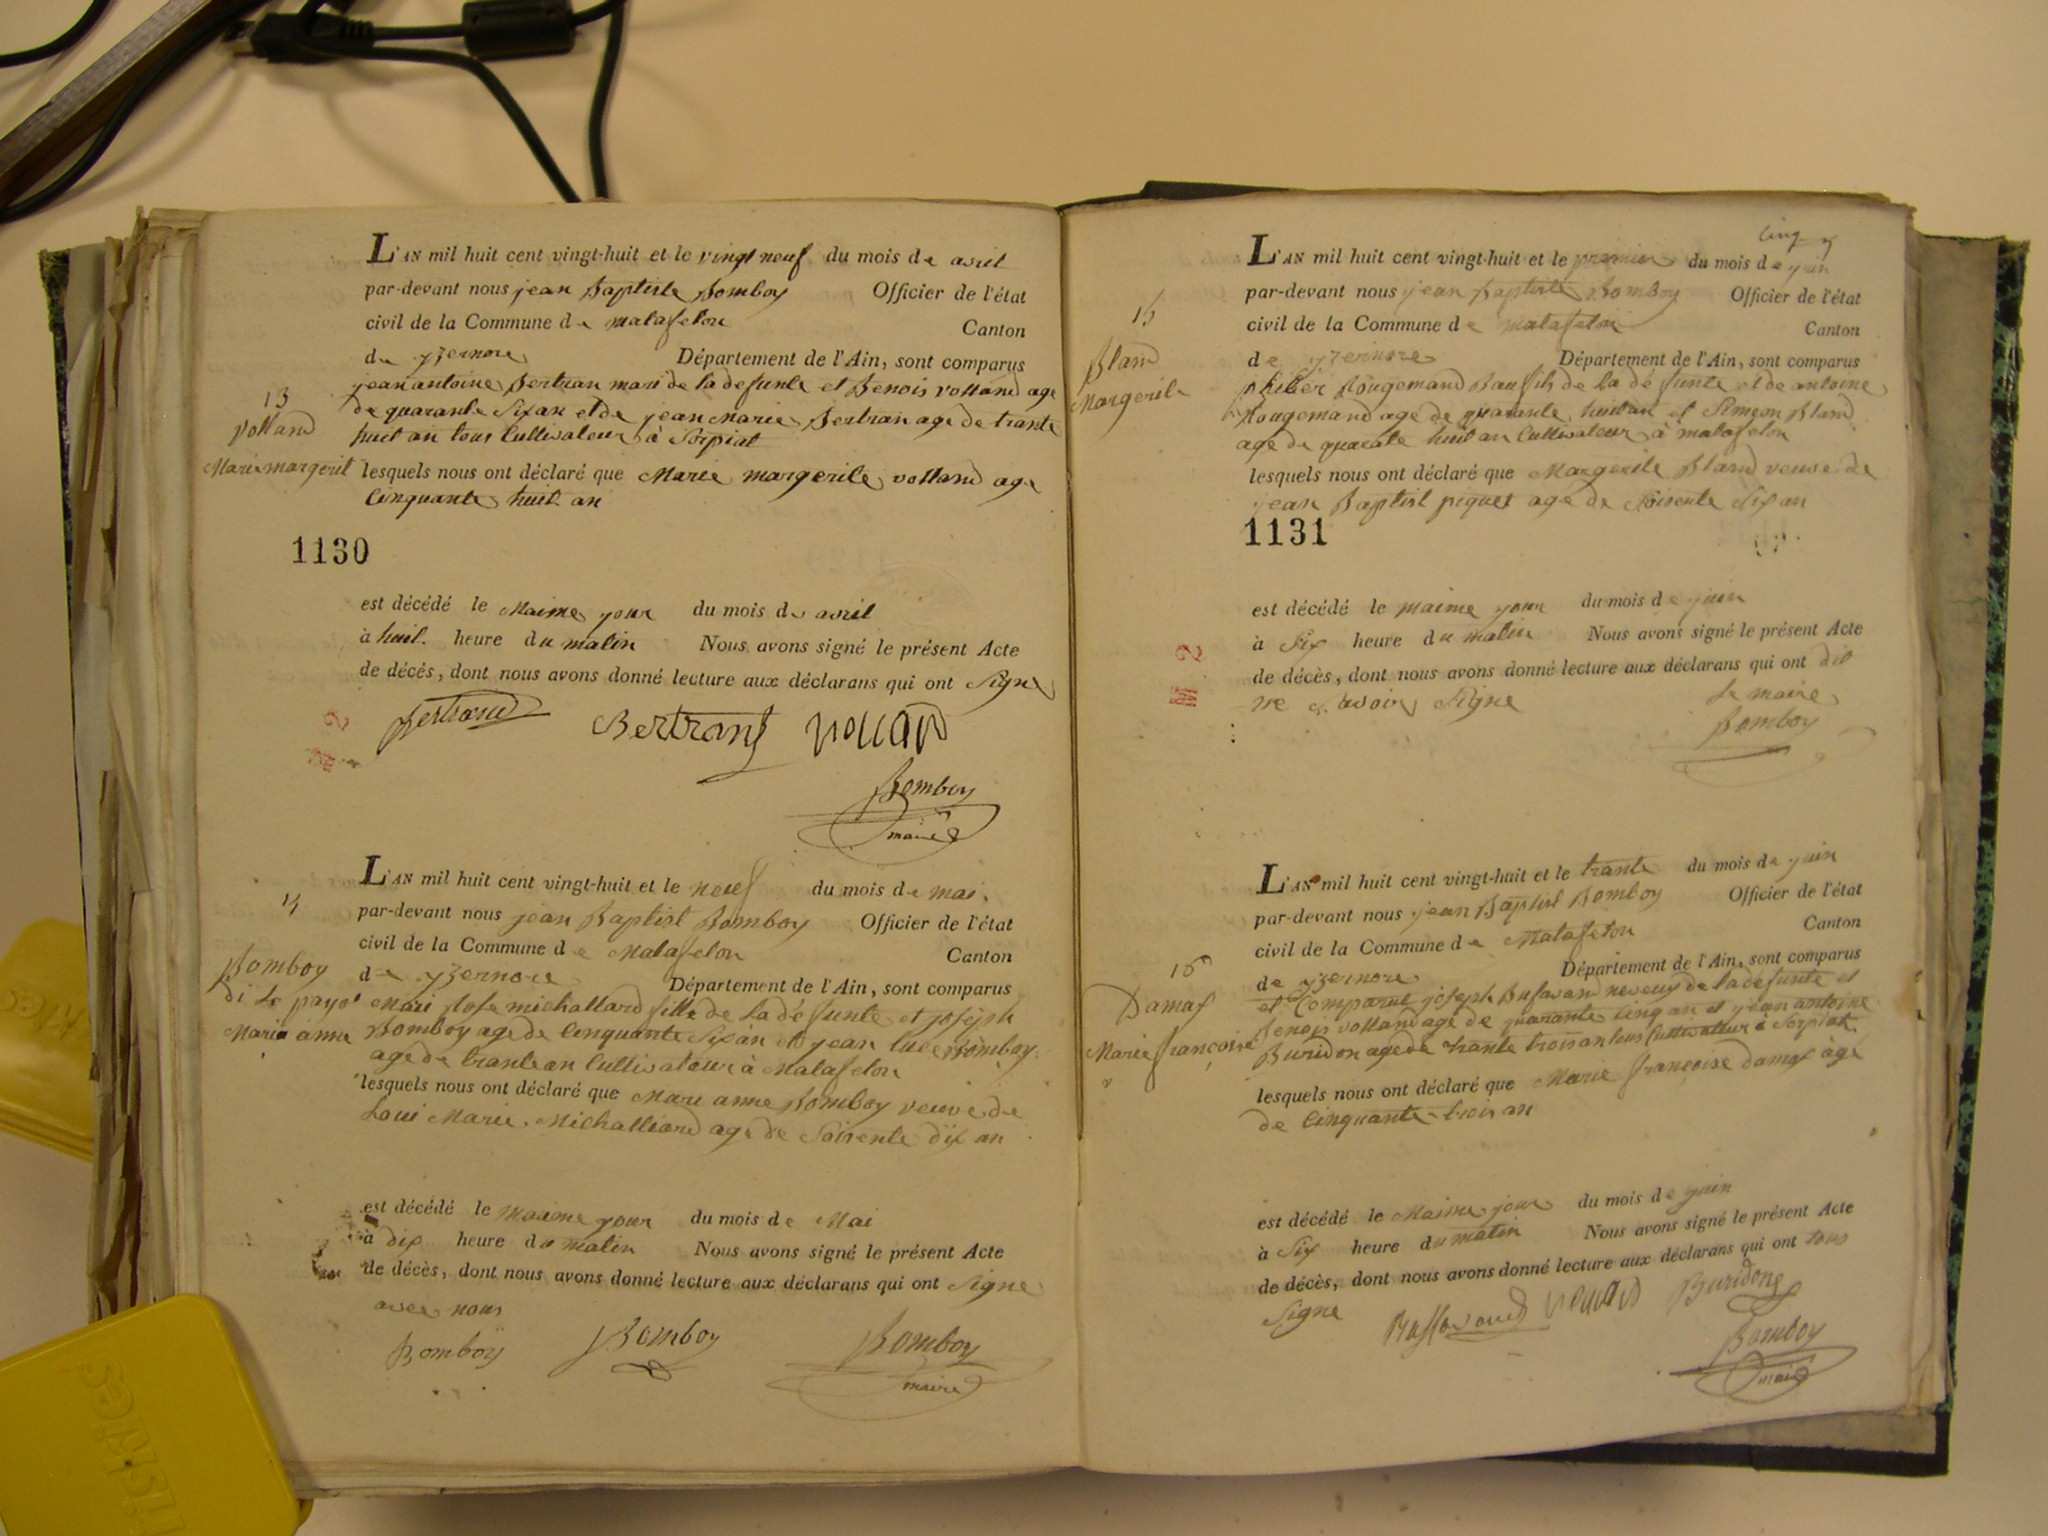 L'AN mil huit cent vingt-huit et le vingt neuf du mois de avril
par-devant nous jean Baptiste Bomboy Officier de l'état
civil de la Commune de matafelon Canton
de yzernore Département de l'Ain, sont comparus
jean antoine Bertran mari de la defunte et Benois volland age
de quarante Six an et de jean Marie Bertran age de trante
huit an tous Cultivateur à Sorpiat
13
Volland
Marie margerit
lesquels nous ont déclaré que Marie margerite volland age
Cinquante huit an
1130
est décédé le Maime jour du mois de avril
à huit heure du matin Nous avons signé le présent Acte
de décès, dont nous avons donné lecture aux déclarans qui ont Signe
Bertrand Bertrant volland
Bomboy
maire
L'AN mil huit cent vingt-huit et le neuf du mois de mai
par-devant nous jean Baptist Bomboy Officier de l'état
civil de la Commune de Matafelon Canton
de yzernore Département de l'Ain, sont comparus
14
Bomboy
di Le payot
Maria anne
Mari Rose michallard fille de la défunte et joseph
Bomboy age de Cinquante Six an et jean luc Bomboy
age de trante an Cultivateur à Matafelon
lesquels nous ont déclaré que Mari anne Bomboy veuve de
Loui Marie Michalliard age de Soisente dix an
est décédé le maime jour du mois de Mai
à dix heure du matin Nous avons signé le présent Acte
de décès, dont nous avons donné lecture aux déclarans qui ont Signe
avec nous
Bomboy Bomboy Bomboy
maire
Cinq
L'AN mil huit cent vingt-huit et le premier du mois de juin
par-devant nous jean Baptiste Bomboy Officier de l'état
civil de la Commune de matafelon Canton
de yzernore Département de l'Ain, sont comparus
15
Bland
Margerite
philber Rougemand Baufils de la défunte et de antoine
Rougemand age de quarante huit an et Simeon Bland
age de quarate huit an Cultivateur à matafelon
lesquels nous ont déclaré que Margerite Bland veuve de
jean Baptist piquet age de Soisente Six an
1131
est décédé le maime jour du mois de juin
à Six heure du matin Nous avons signé le présent Acte
de décès, dont nous avons donné lecture aux déclarans qui ont dit
ne Savoir Signe Le maire
Bomboy
L'AN mil huit cent vingt-huit et le trante du mois de juin
par-devant nous jean Baptist Bomboy Officier de l'état
civil de la Commune de Matafelon Canton
de yzernore Département de l'Ain, sont comparus
16
Damas
Marie françoise
et Comparue joseph Bufavand neveux de la defunte et
Benois volland age de quarante Cinq an et jean antoine
Buridon age de trante trois an tous Cultivateur à Sorpiat
lesquels nous ont déclaré que Marie françoise damas àge
de Cinquante trois an
est décédé le Maime jour du mois de juin
à Six heure du matin Nous avons signé le présent Acte
de décès, dont nous avons donné lecture aux déclarans qui ont tous
Signe Buffavand volland Buridong
Bomboy
maire